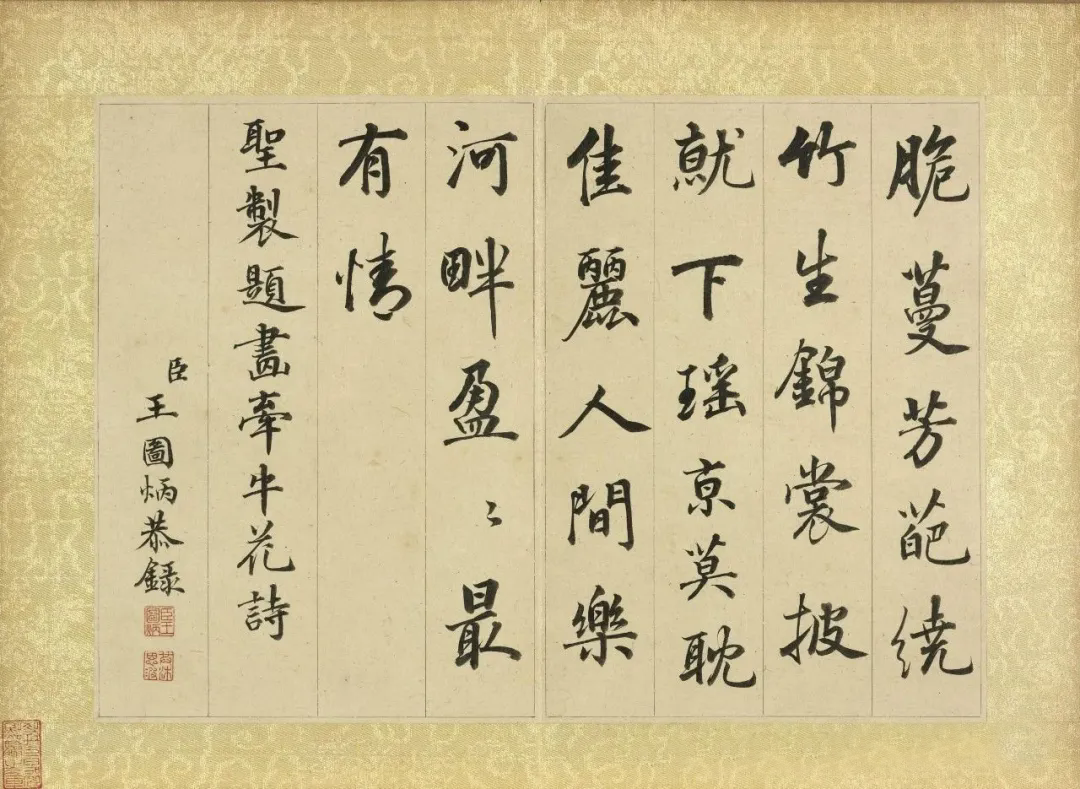 脆蔓芳葩繞
竹生錦裳披
就下瑶京莫耽
佳麗人間樂
河畔盈〻最
有情
聖製題畫牽牛花詩
臣王圖炳恭錄
臣王圖炳